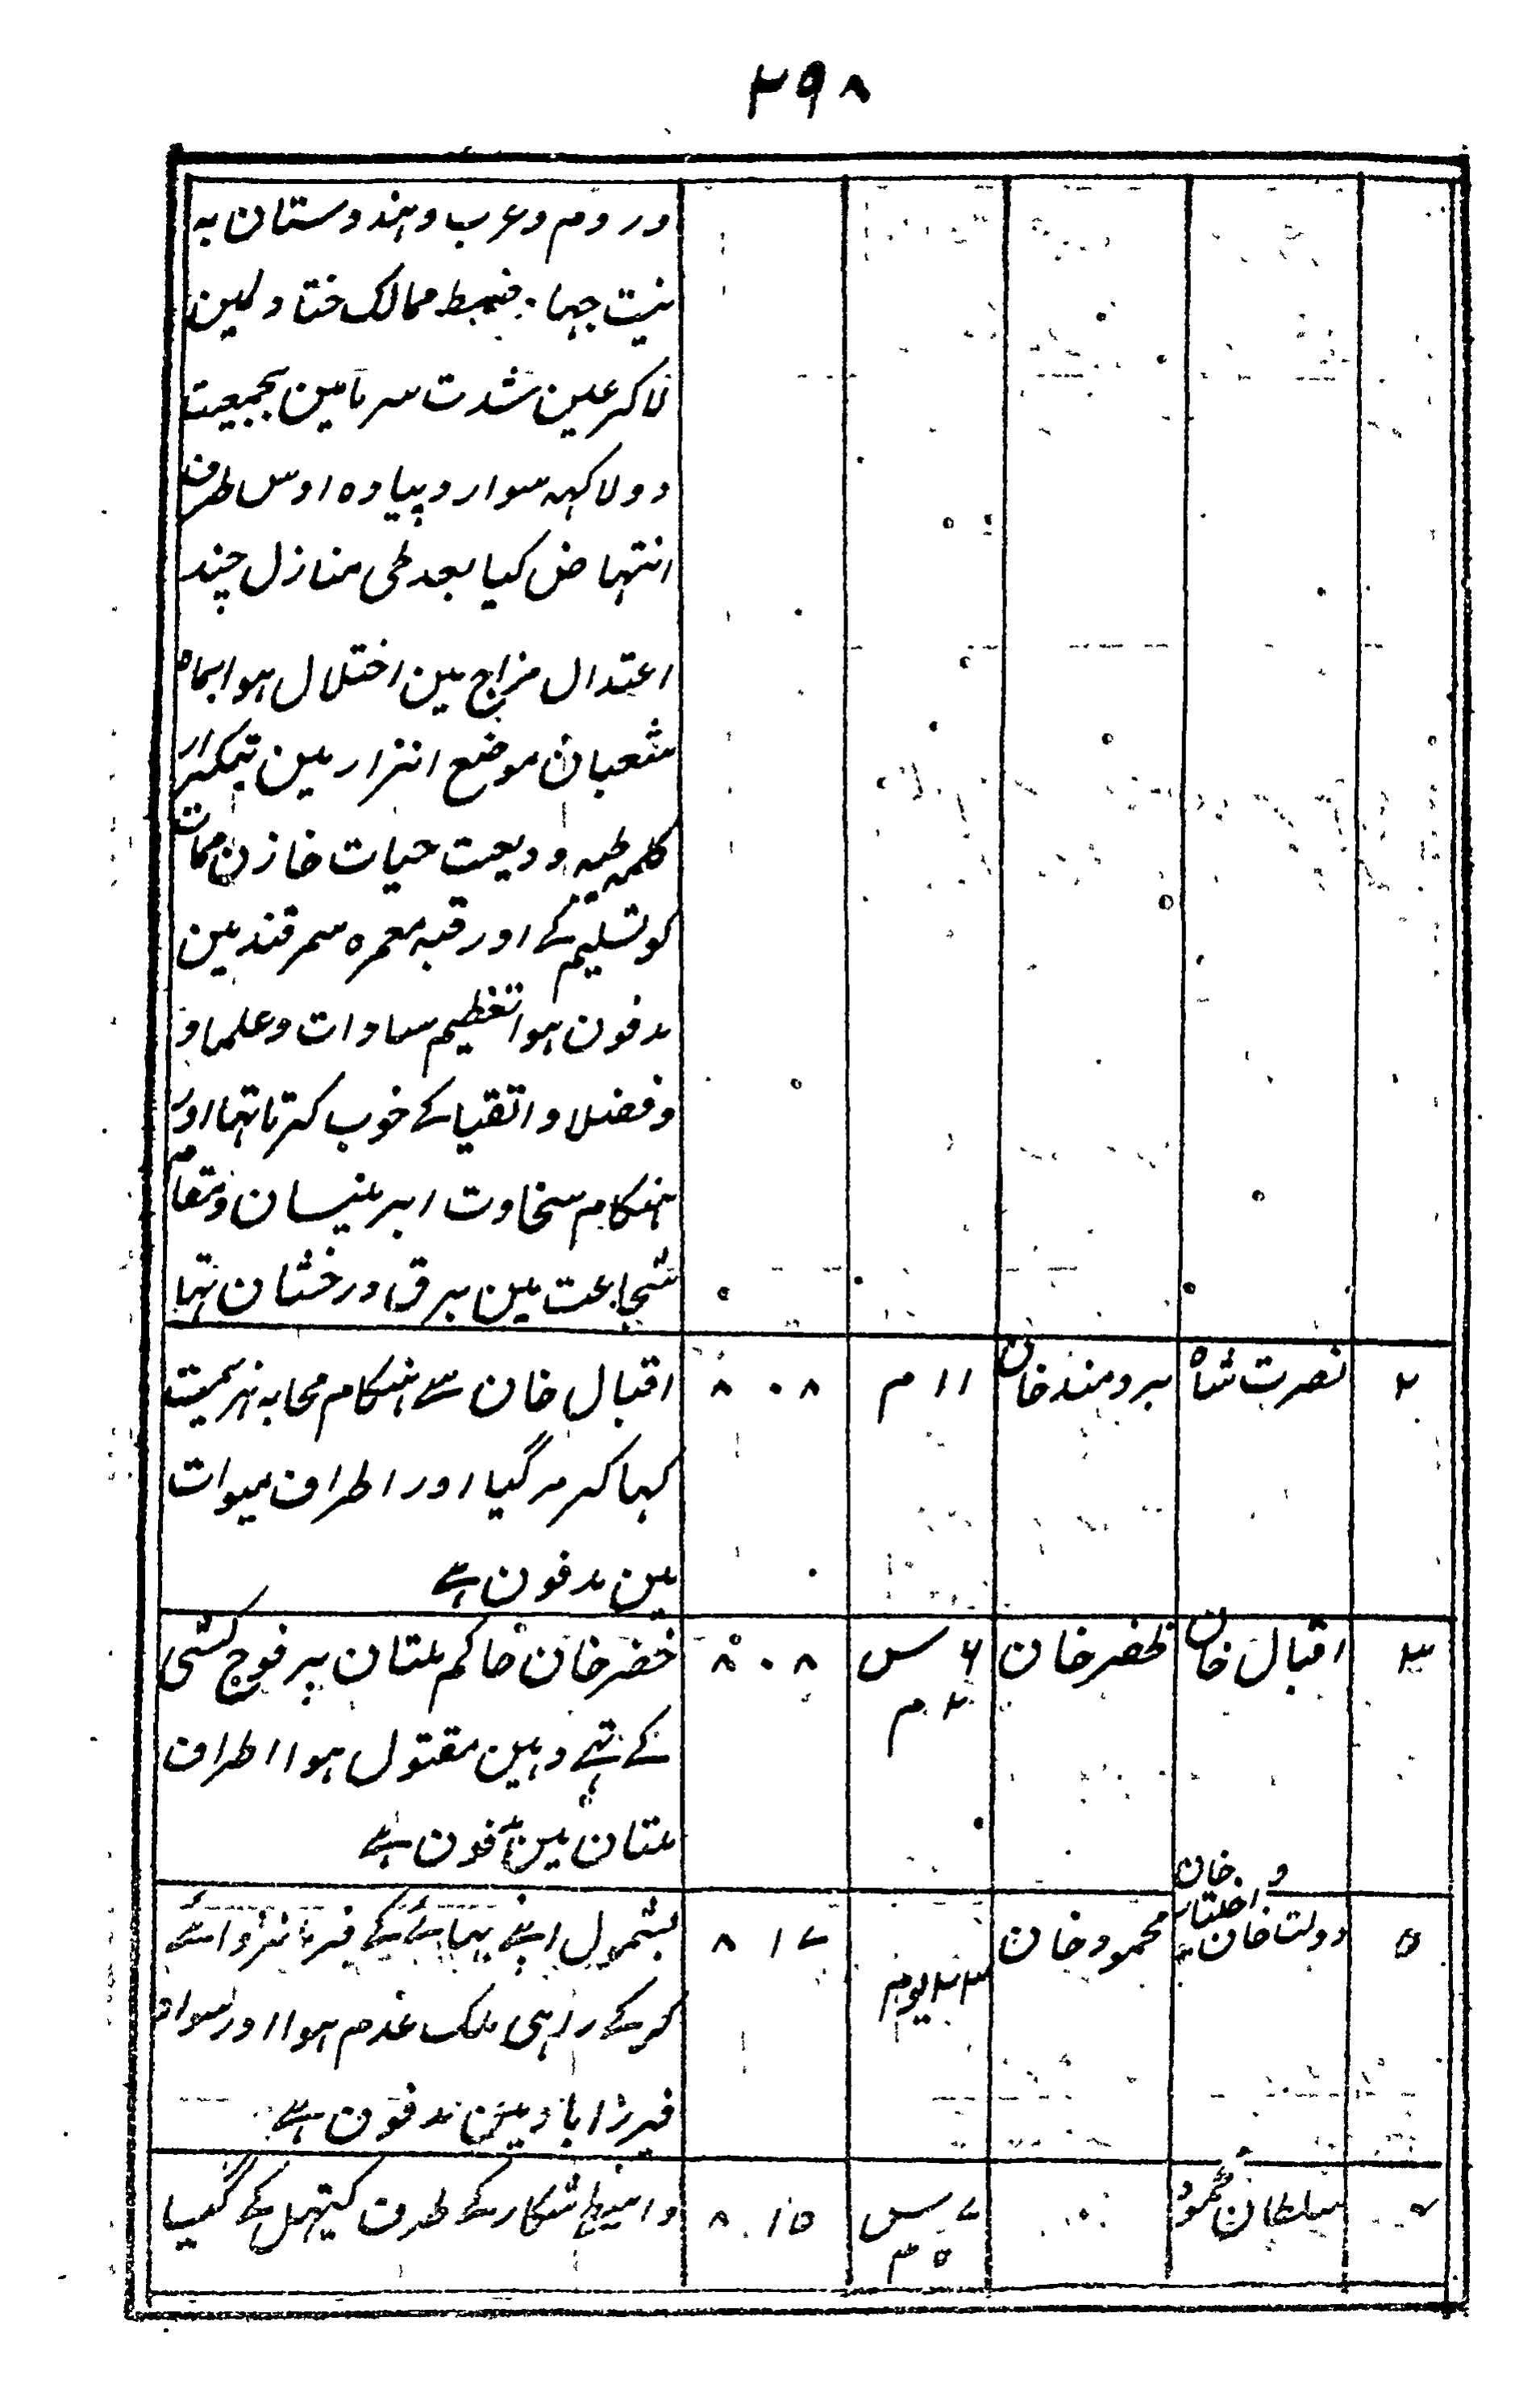 ۲۹۸
وروم وعرب وہندوستان بہ
نیت جہا ضبط ممالک ختا دلمین
لاکر عین شدت سرمامین بجمعیت
دو لاکہہ سوار و پیادہ اوس طرف
انتہاض کیا بعد طی منازل چند
اعتدال مزاج مین اختلال ہوا بماہ
شعبان موضع انزار مین بتکرار
کلمہ طیبہ ودیعت حیات خازن ممات
کو تسلیم کے اور قبہ معمرہ سمرقند مین
مدفون ہوا تعظیم سادات و علما و
و فضلا و اتقیا کے خوب کرتا تہا اور
ہنکام سخاوت ابر نیسان و مقام
شجاعت مین برق درخشان تہا
۲ نصرت شاہ برومند خان ۱۱ م ۸۰۸ اقبال خان سے ہنکام محابہ ہزیمت
کہا کر مر گیا اور اطراف میوات
مین مدفون ہے
۳ اقبال خان ظفر خان ۶ س ۲ م ۸۰۸ خضر خان حاکم ملتان پر فوج کشی
کے تہے وہین مقتول ہوا اطراف
ملتان مین مدفون ہے
۵ دولت خان و اختیار خان محمود خان ۲۳ یوم ۸۱۷ بشمول اپنے بہائے کے فرمانروائے
کرکے راہی ملک عدم ہوا اور سواد
فیرزاباد مین مدفون ہے
سلطان محمود ۷ س ۵ م ۸۱۵ واسطے شکار کے طرف کیتہل کے گیا